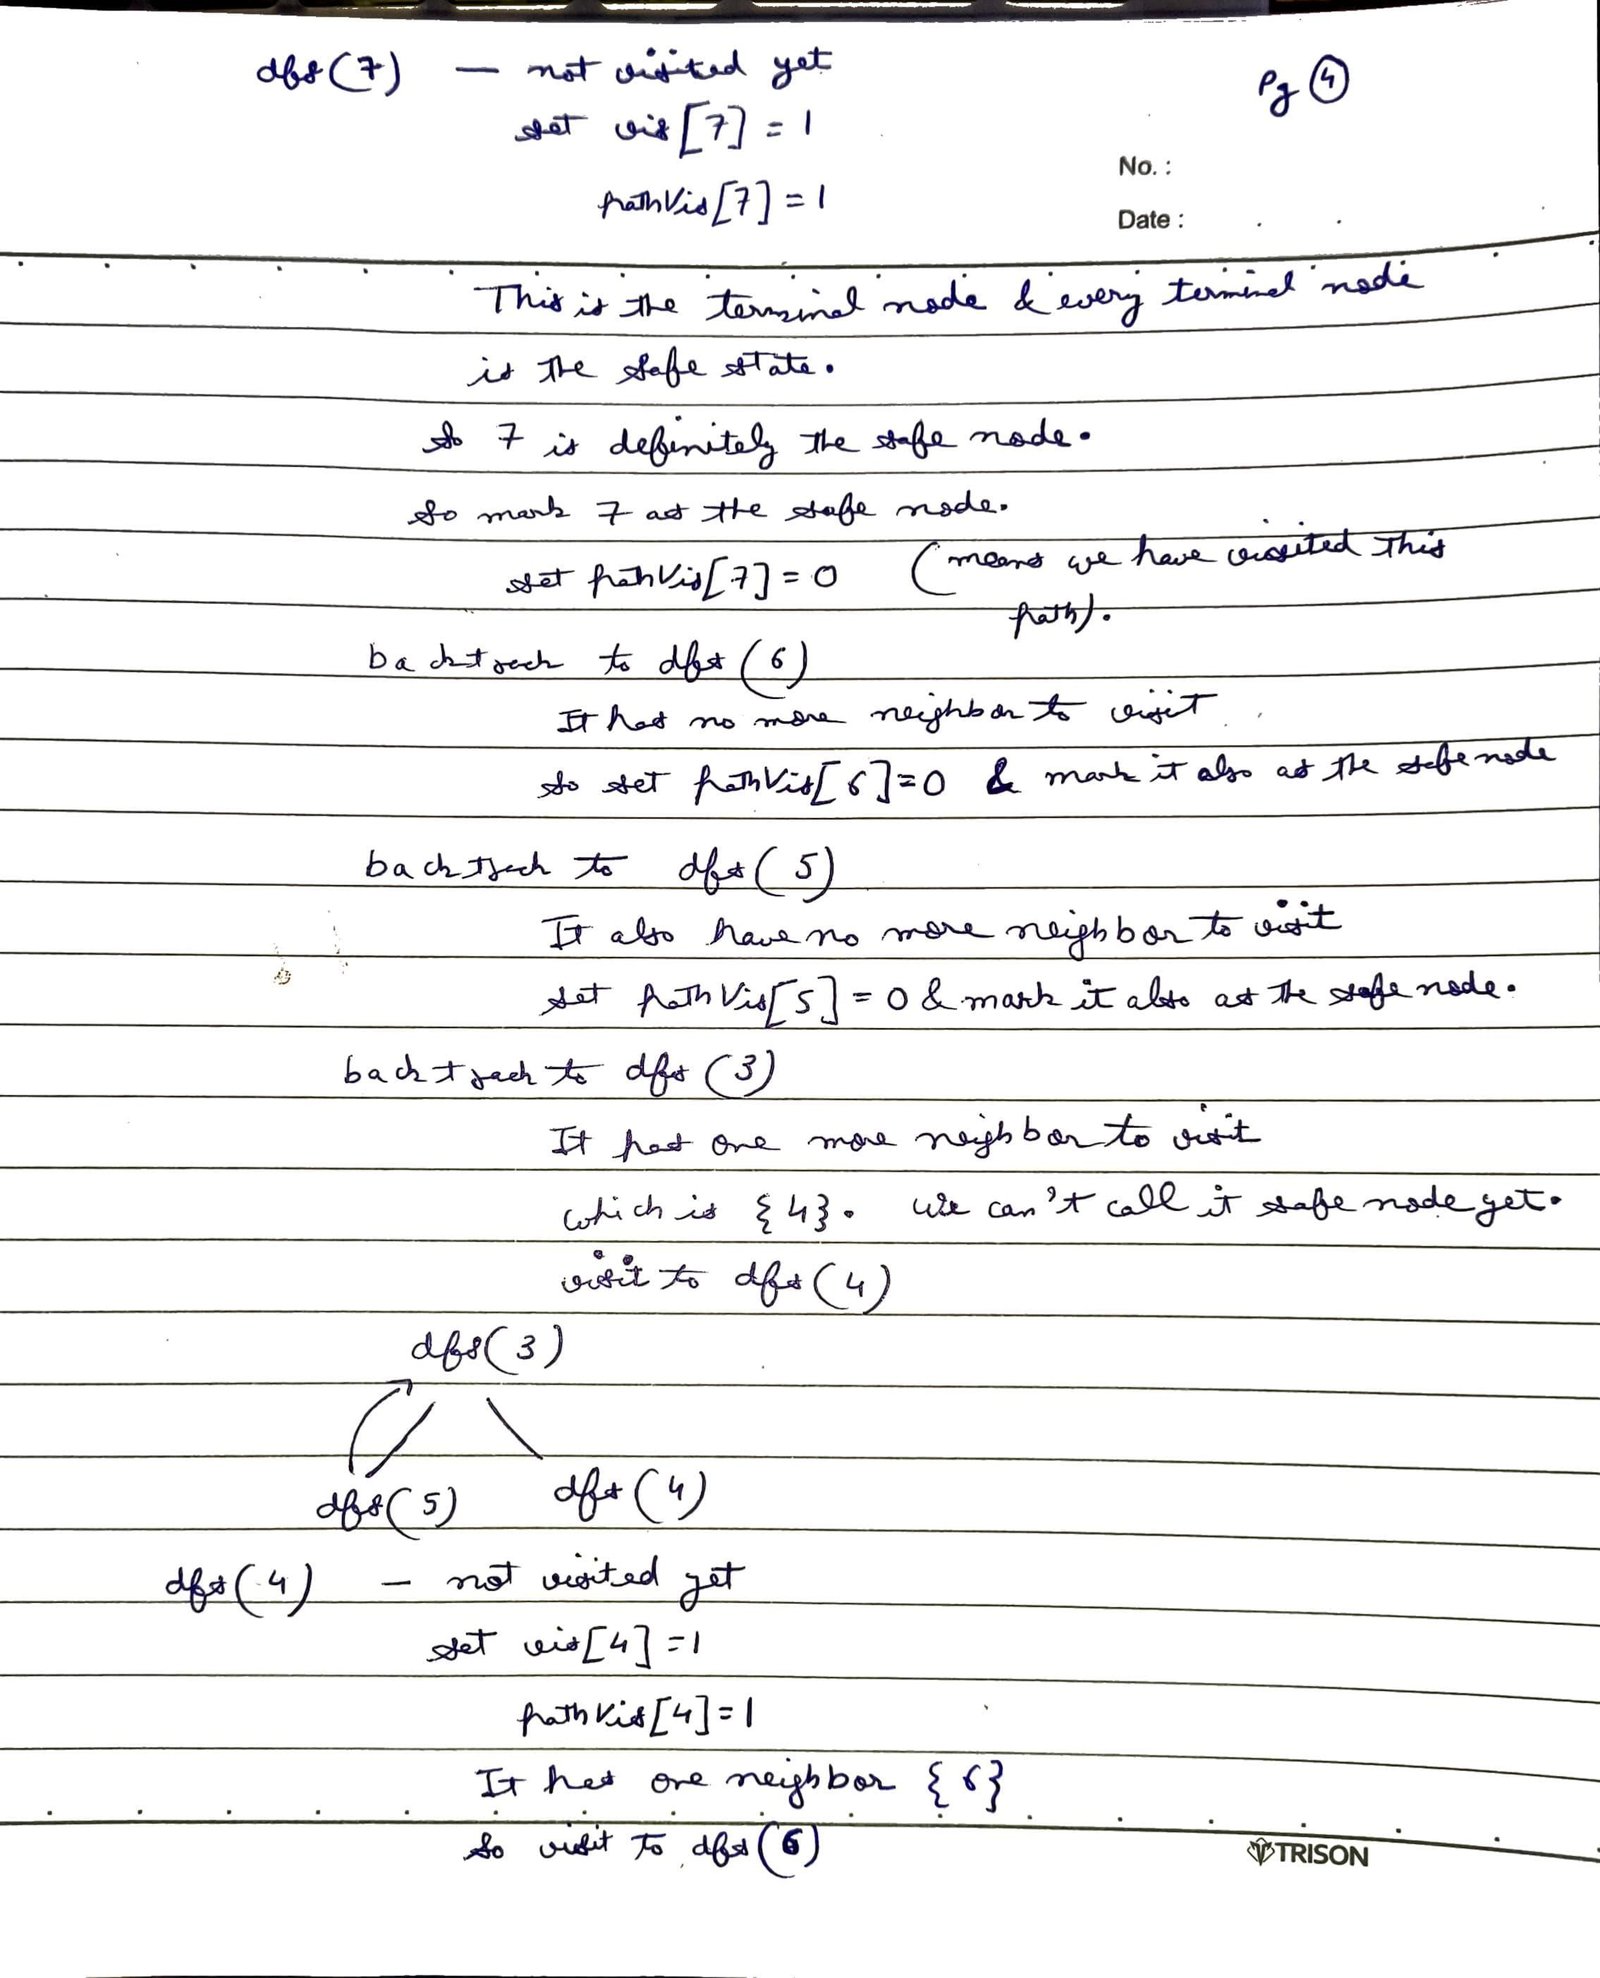 dfs(7) — not visited yet
Pg 4
set vis[7] = 1
No. :
pathVis[7] = 1
Date :
This is the terminal node & every terminal node
is the safe state.
So 7 is definitely the safe node.
So mark 7 as the safe node.
set pathVis[7] = 0 (means we have visited this
path).
backtrack to dfs(6)
It has no more neighbor to visit
So set pathVis[6]=0 & mark it also as the safe node
backtrack to dfs(5)
It also have no more neighbor to visit
set pathVis[5] = 0 & mark it also as the safe node.
backtrack to dfs(3)
It has one more neighbor to visit
which is {4}. We can't call it safe node yet.
visit to dfs(4)
dfs(3)
dfs(5) dfs(4)
dfs(4) — not visited yet
set vis[4] =1
pathVis[4]=1
It has one neighbor {6}
So visit to dfs(6)
TRISON